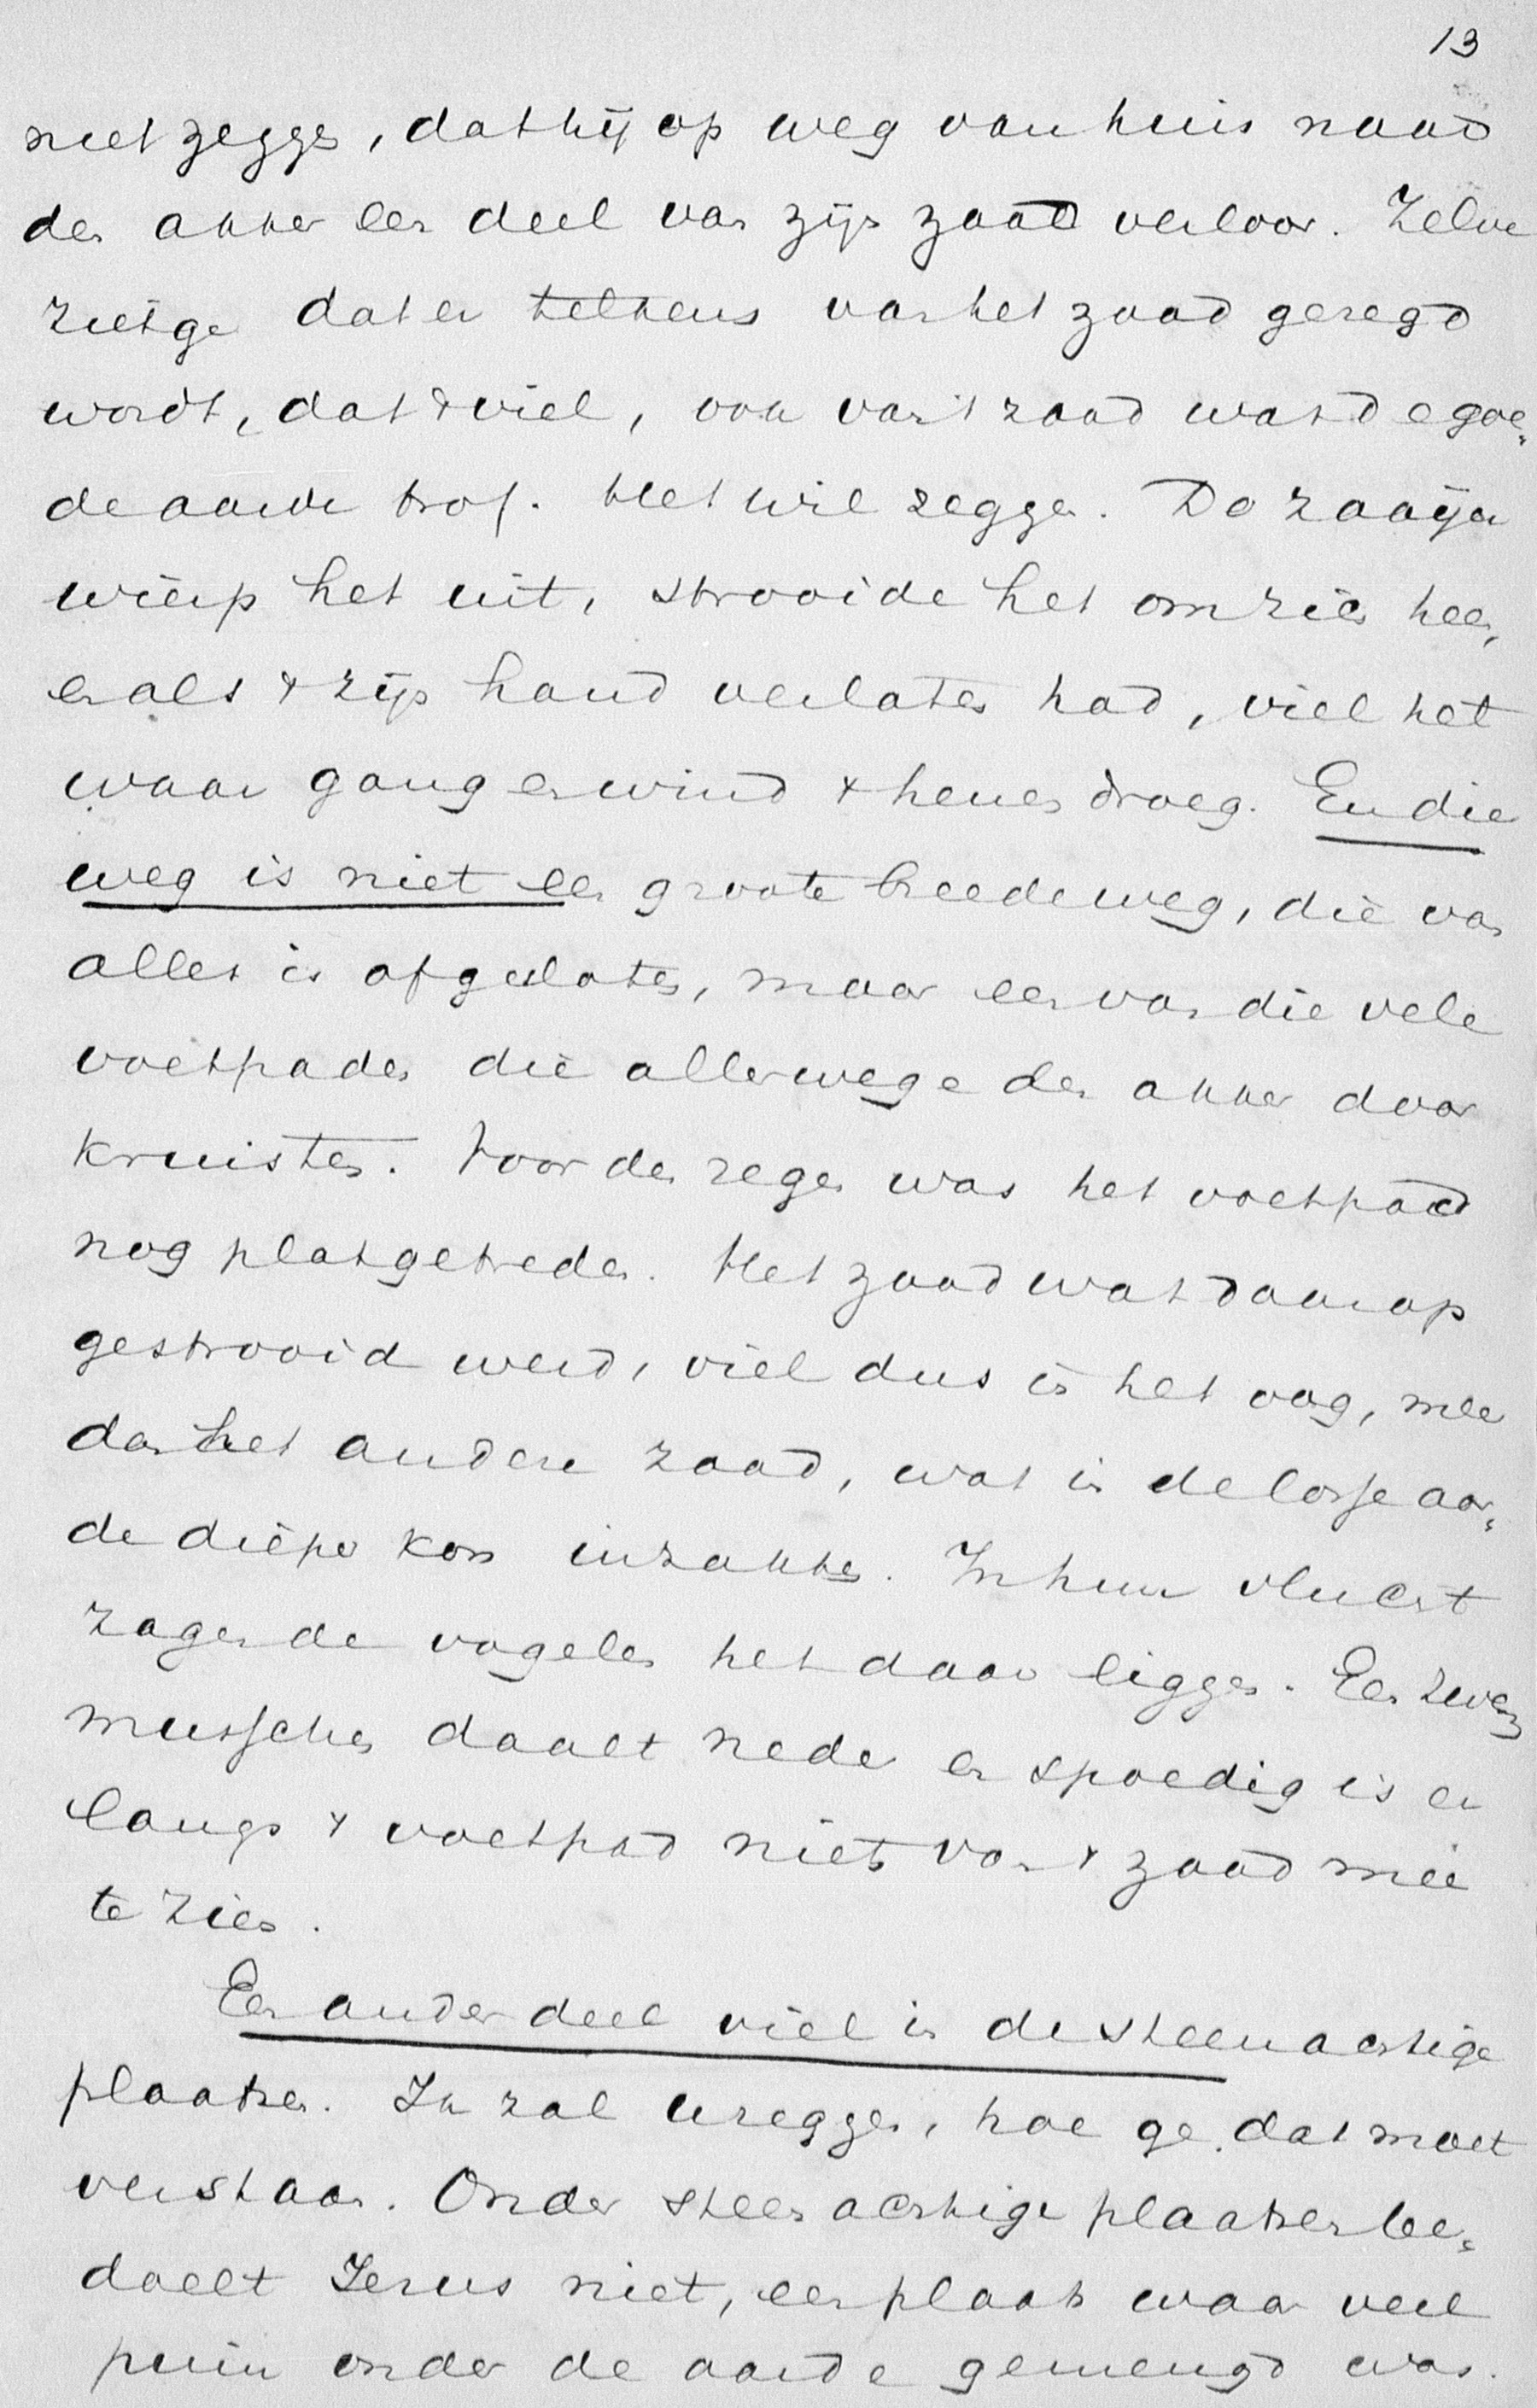 13
niet zeggen, dat hij op weg van huis naar
den akker een deel van zijn zaad verloor. Zelve
ziet ge dat er telkens van het zaad gezegd
wordt, dat 't viel, ook van 't zaad wat de goe„
de aarde trof. Het wil zeggen. De zaaijer
wierp het uit, strooide het om zich heen,
en als 't zijn hand verlaten had, viel het
waar gang en wind 't henen droeg. En die
weg is niet een groote breede weg, die van
alles is afgesloten, maar een van die vele
voetpaden die allerwege den akker door
kruisten. Voor den zegen was het voetpad
nog platgetreden. Het zaad wat daarop
gestrooid werd, viel dus in het oog, meer
dan het andere zaad, wat in de losse aar„
de dieper kon inzakken. In hun vlucht
zagen de vogelen het daar liggen. Een zwerm
musschen daalt neder en spoedig is er
langs 't voetpad niets van 't zaad meer
te zien.
Een ander deel viel in de steenachtige
plaatsen. Ik zal u zeggen, hoe ge dat moet
verstaan. Onder steenachtige plaatsen be„
doelt Jezus niet, een plaats waar veel
puin onder de aarde gemengd was.